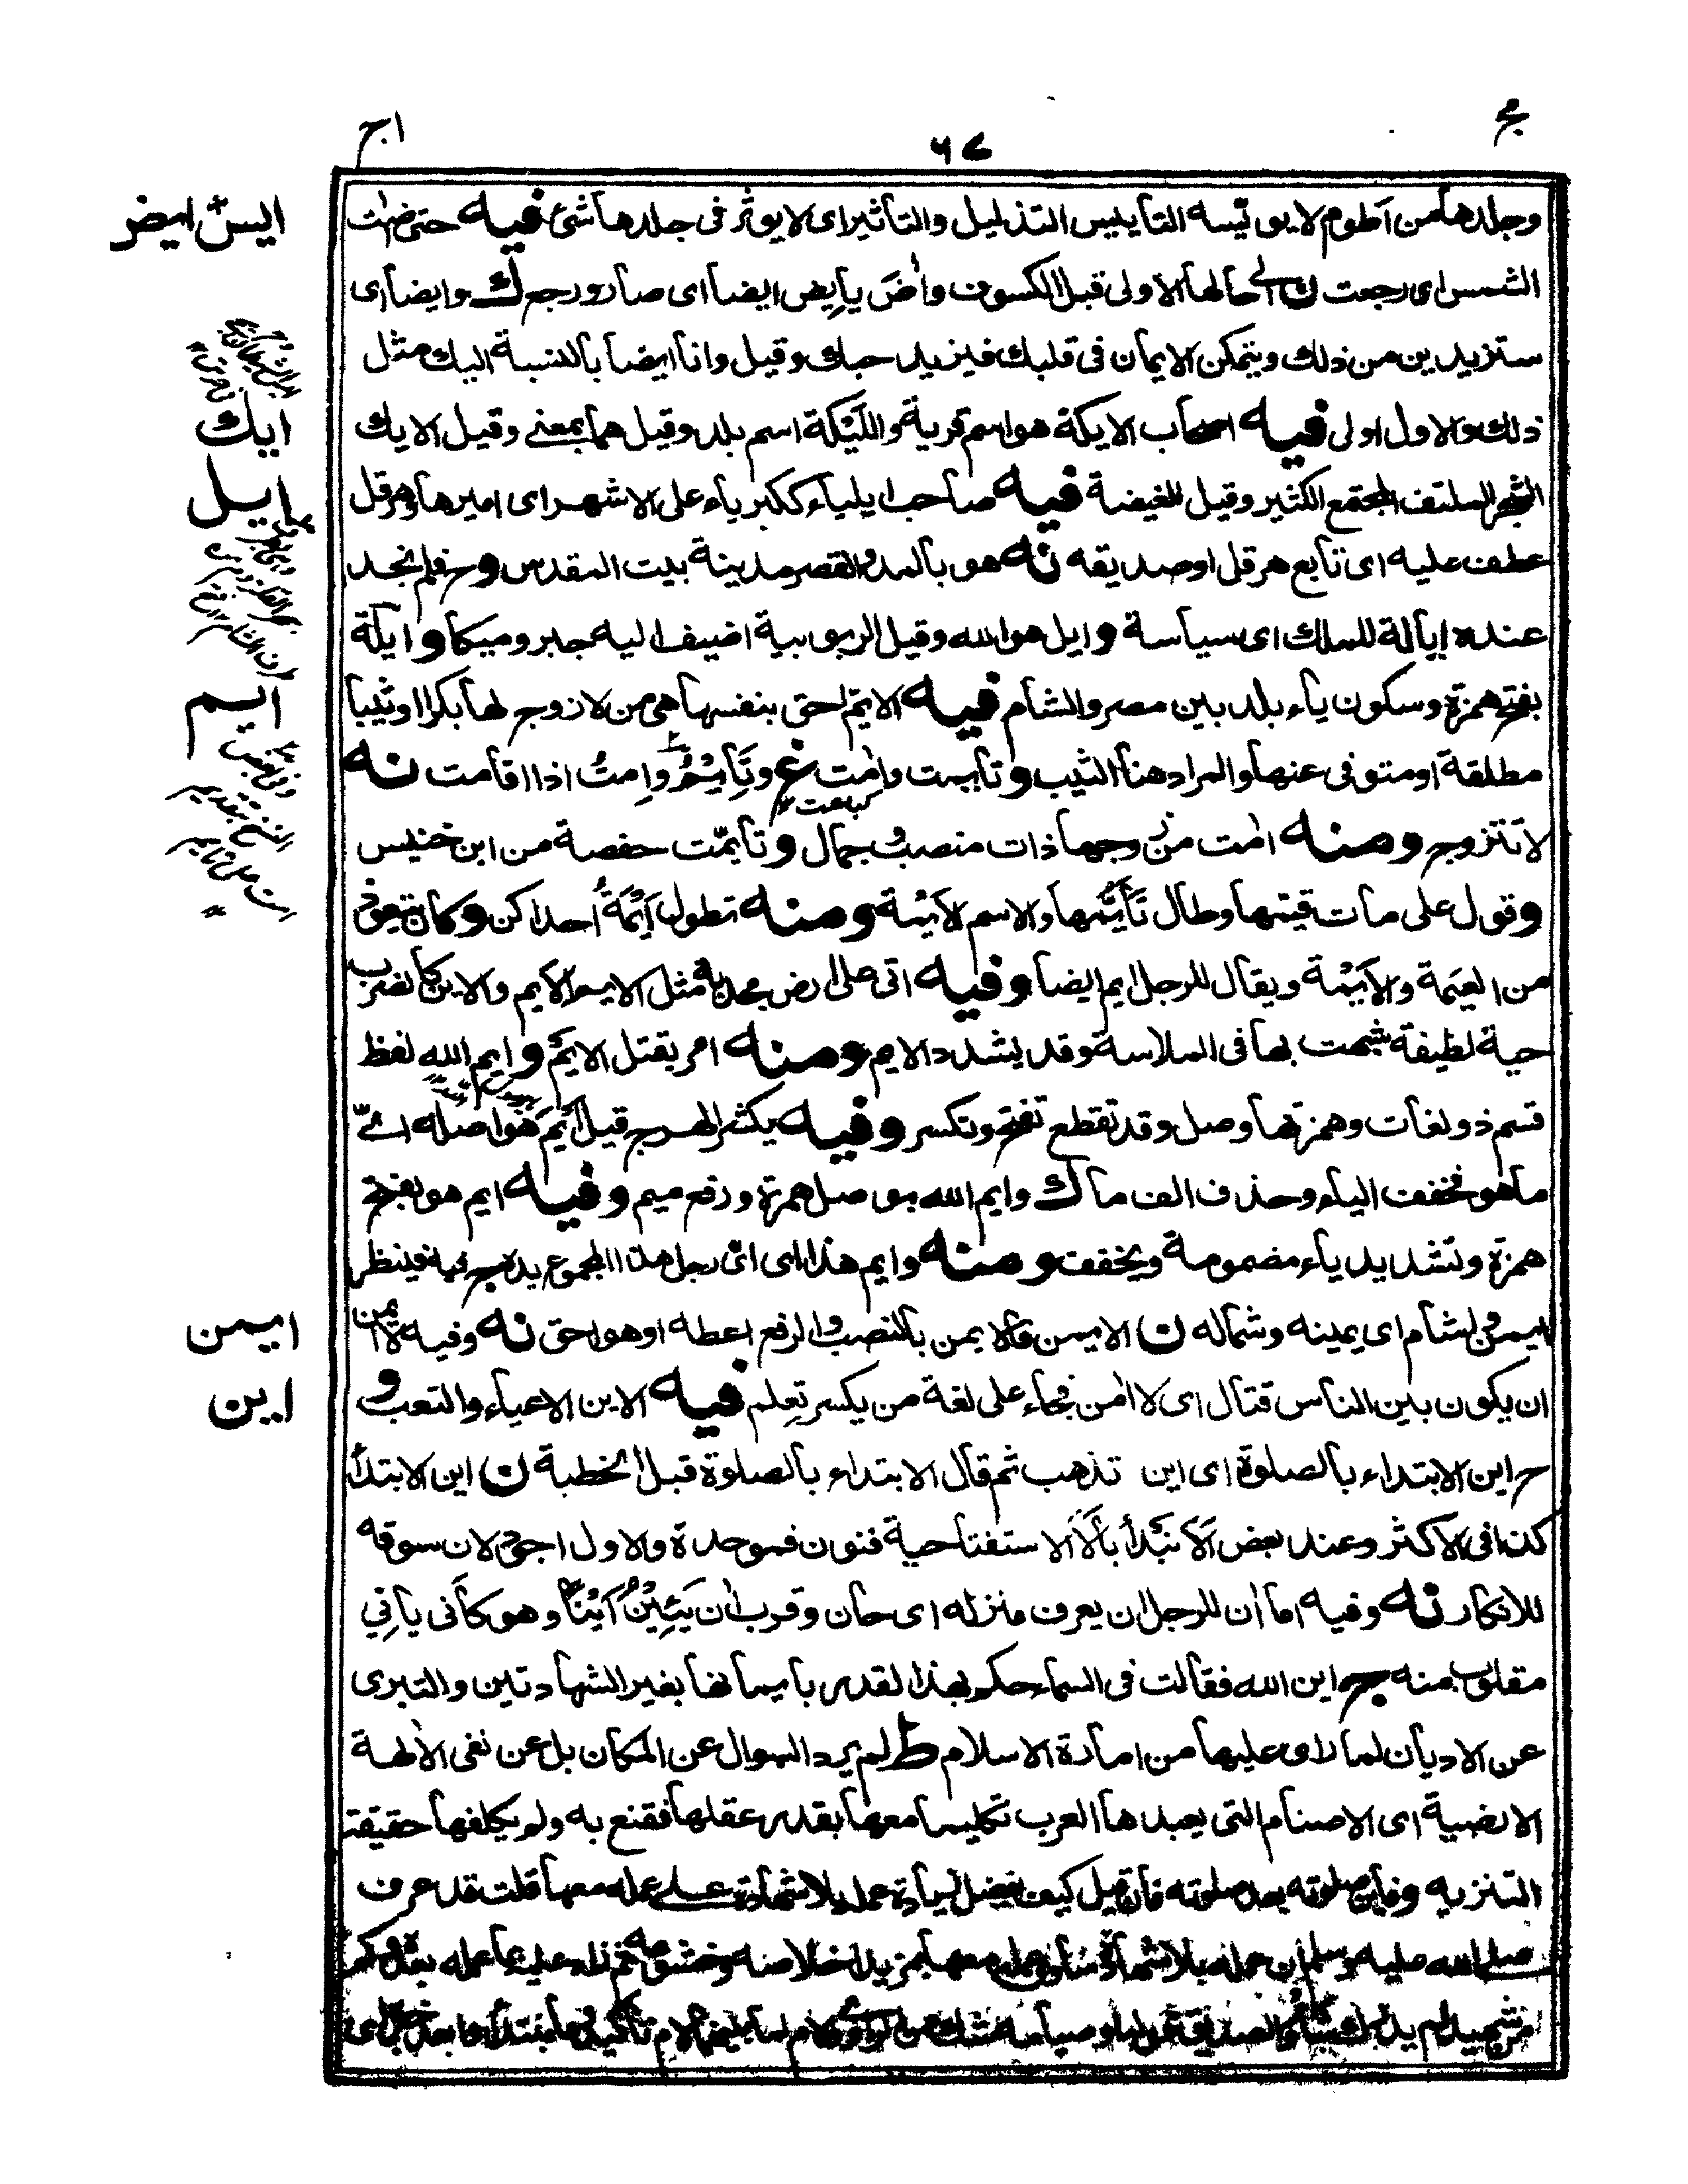 ج
٦٧
اج
وجلدها من اطوم لا يويّسه التأييس التذليل والتأثير اى لا يوثر فى جلدها شئ فيه حتى اضت
الشمس اى رجعت ن الى حالها الاولى قبل الكسوف واٰضَ يأيِض ايضا اى صار ورجع ك وايضا اى
ستزيدين من ذلك ويتمكن الايمان فى قلبك فيزيد حبك وقيل وانا ايضا بالنسبة اليك مثل
ذلك والاول اولى فيه اصحاب الايكة هو اسم قرية واللَيْكة اسم بلد وقيل هما بمعنى وقيل الايك
الشجر الملتف المجتمع الكثير وقيل الغيضة فيه صاحب ايلياء ككبرياء على الاشهر اى اميرها وهرقل
عطف عليه اى تابع هرقل او صديقه نه هو بالمد والقصر مدينة بيت المقدس وح فلم نجد
عنده إيالة للملك اى سياسة و ايل هو الله وقيل الربوبية اضيف اليه جبر وميكا و ايلة
بفتح همزة وسكون ياء بلد بين مصر والشام فيه الايّم احق بنفسها هى من لا زوج لها بكرا او ثيبا
مطلقة او متوفى عنها والمراد هنا الثيب و تأيمت واٰمت غ وتَأيَّمْتُ وإمتُ اذا اقامت نه
لا تتزوج ومنه اٰمت من زوجها ذات منصب وجمال و تأيّمت حفصة من ابن خنيس
و قول على مات قيمها وطال تَأيّمها والاسم الأيْمة ومنه تطول أيْمَةُ احداكن و كان يتعوذ
من العَيمة والأَيْمة ويقال للرجل ايم ايضا وفيه اتى على ارض جدبة مثل الايم الأيم والاين كضرب
حية لطيفة شبهت بها فى الملاسة وقد يشدد الايم ومنه امر بقتل الايم و ايم الله لفظ
قسم ذو لغات وهمزتها وصل وقد تقطع تفتح وتكسر وفيه يكثر الهرج قيل أيْمَ هو اصله اىّ
ما هو فخفف الياء وحذف الف ما ك وايم الله بوصل همزة ورفع ميم وفيه ايم هو بفتح
همزة وتشديد ياء مضمومة ويخفف ومنه وايم هذا اى اىّ رجل هذا
ايمن واشام اى يمينه وشماله ن الايمن فالايمن بالنصب والرفع اعطه او هو احق نه وفيه
ان يكون بين الناس قتال اى لا اٰمن فجاء على لغة من يكسر تِعلم فيه الاين الاعياء والتعب و
ح اين الابتداء بالصلوة اى اين تذهب ثم قال الابتداء بالصلوة قبل الخطبة ن اين الابتدأ
كذا فى الاكثر وعند بعض ألا نَبْدأ بألا الاستفتاحية فنون فموحدة والاول اجود لان سوقه
للانكار نه وفيه اما اٰن للرجل ان يعرف منزله اى حان وقرب اٰن يَئِيْنُ أيْنًا وهو كأنى يأنِي
مقلوب منه ج اين الله فقالت فى السماء حكم بهذا القدر بايمانها بغير الشهادتين والتبرى
عن الاديان لما راى عليها من امارة الاسلام ط لم يرد السوال عن المكان بل عن نفى الاٰلهة
الارضية اى الاصنام التى يعبدها العرب تكليما معها بقدر عقلها فقنع به ولم يكلفها حقيقة
التنزيه وفاين صلوته بعد صلوته فان قيل كيف يفضل لزيادة عمله بلا شهادة على عمله معها قلت قد عرف
صلى الله عليه وسلم ان عمله بلا شهادة
ايس ايض
ايك
ايل
ايم
ايمن
اين